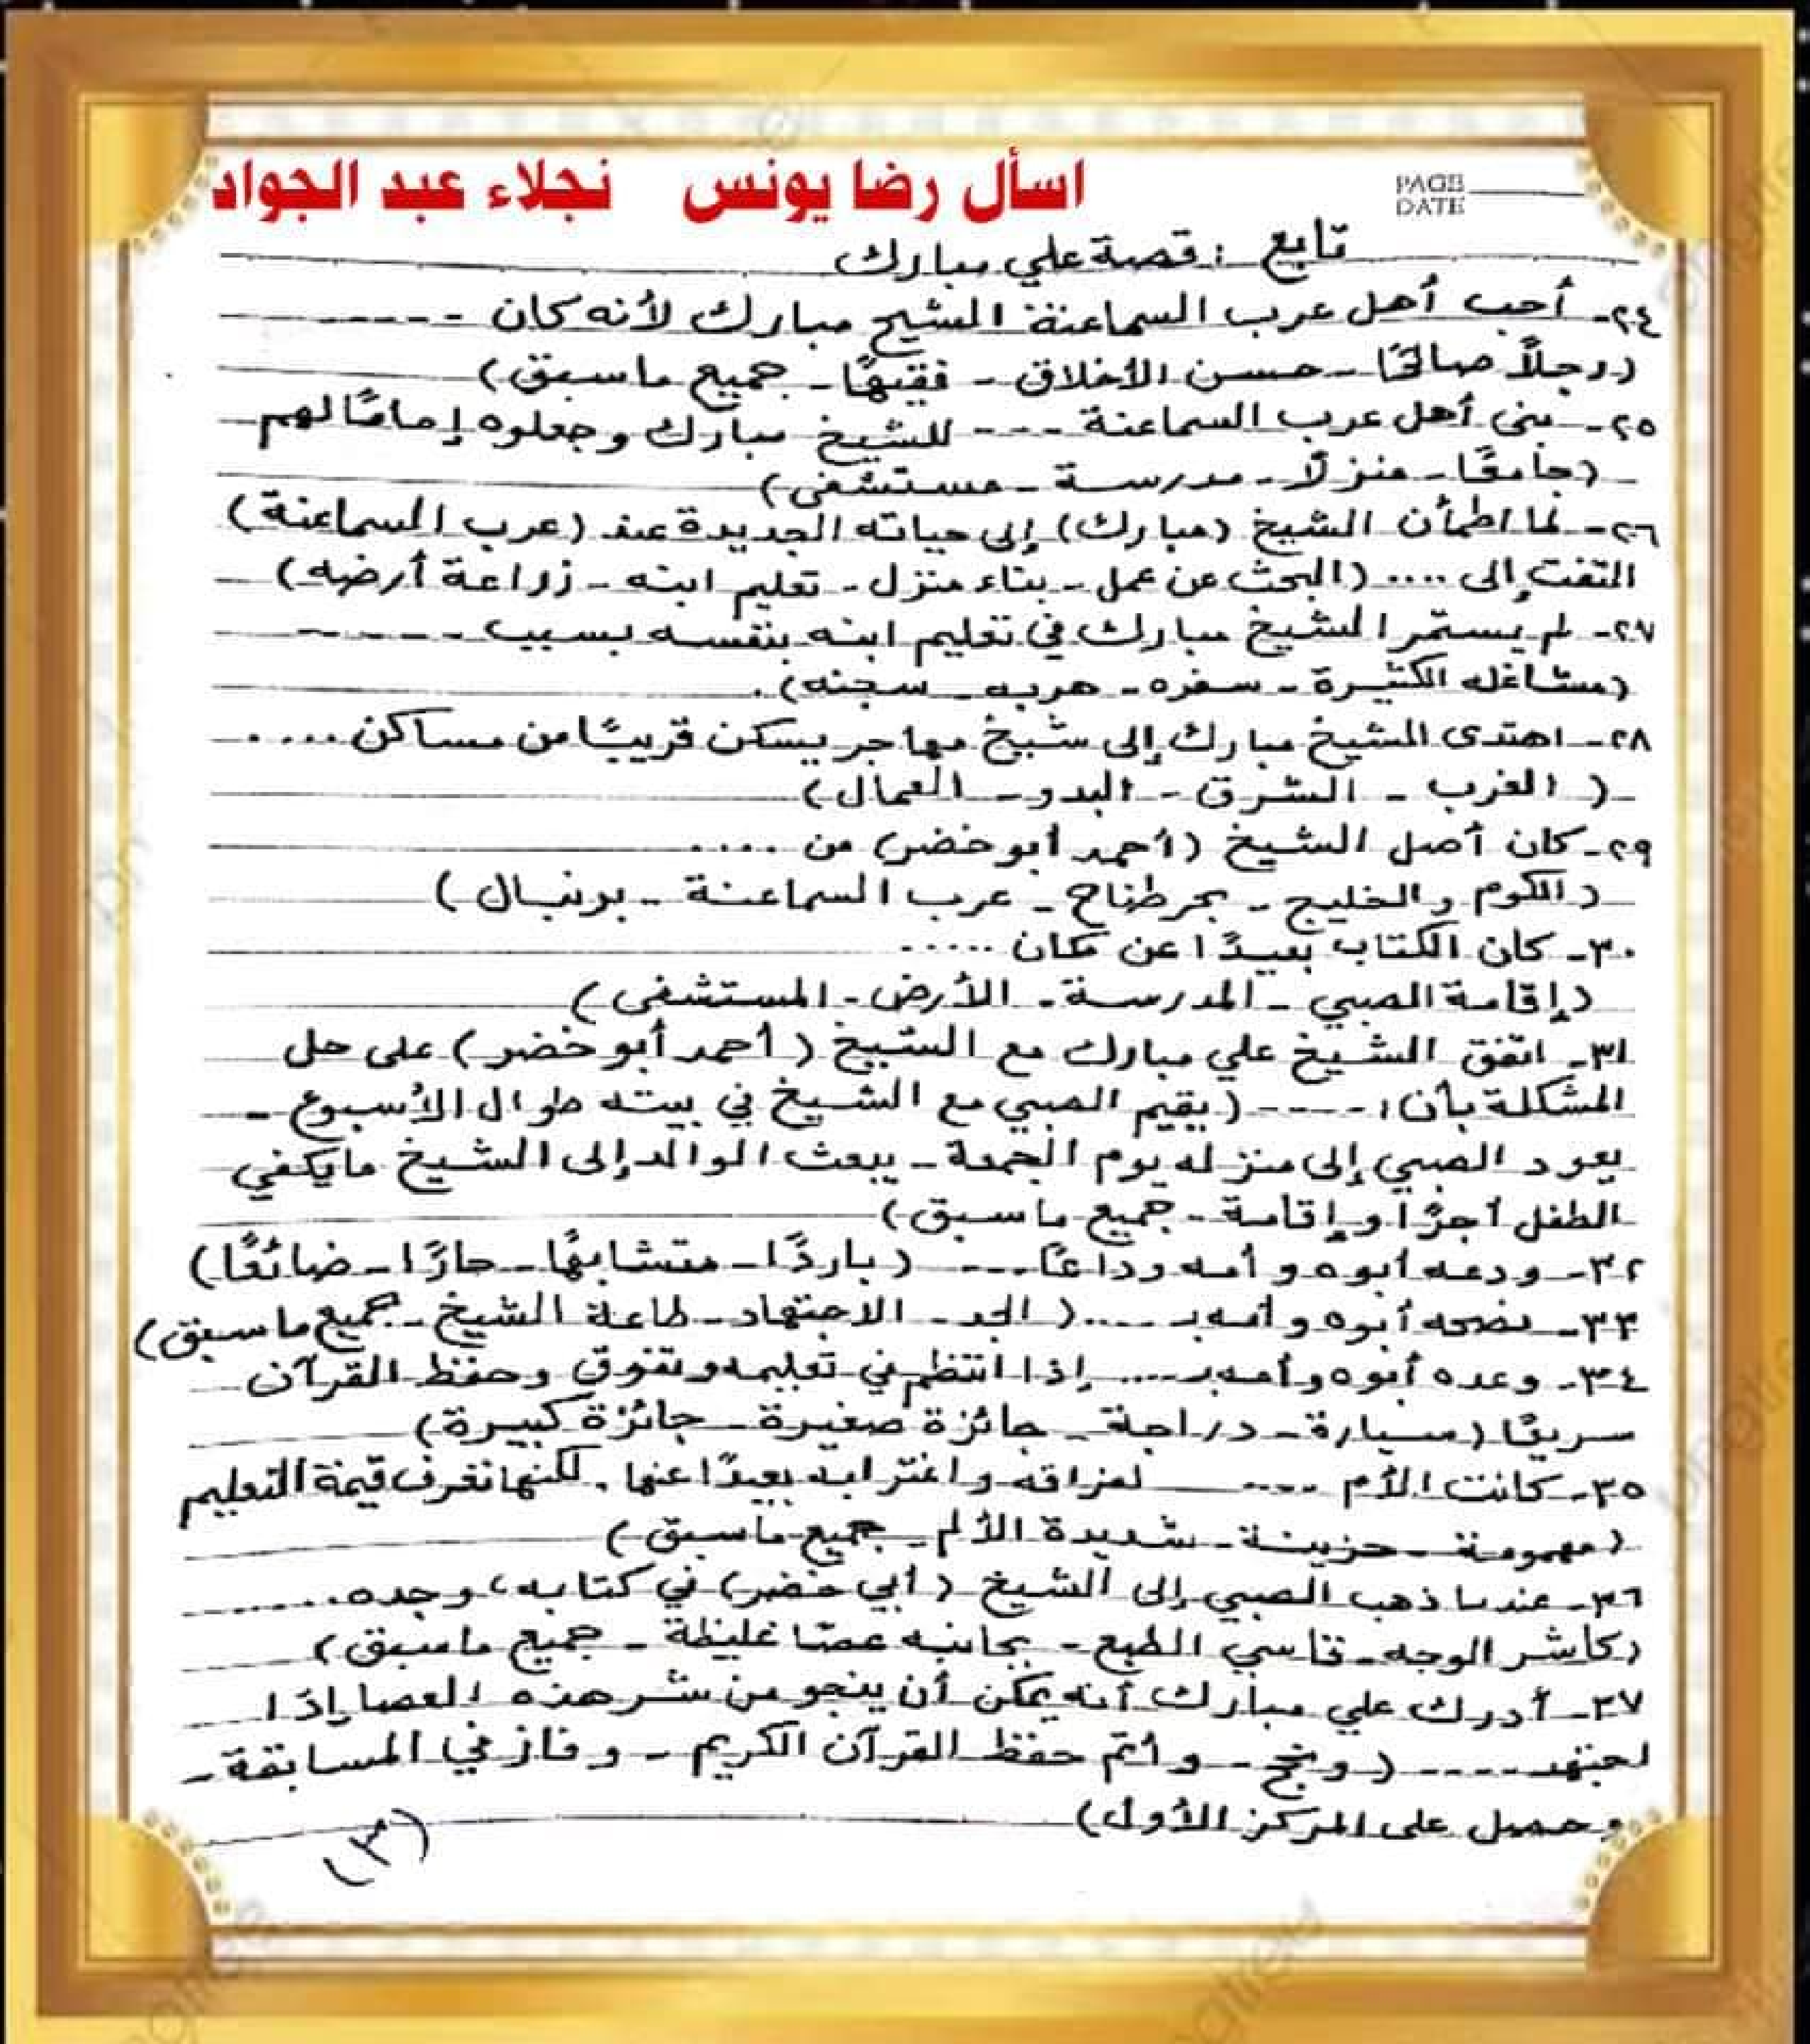 اسأل رضا يونس   نجلاء عبد الجواد
PAGE
DATE
تابع : قصة علي مبارك
٢٤- أحب أهل عرب السماعنة الشيخ مبارك لأنه كان ------
(رجلاً صالحًا - حسن الأخلاق - فقيهًا - جميع ما سبق)
٢٥- بنى أهل عرب السماعنة --- للشيخ مبارك وجعلوه إمامًا لهم
(جامعًا - منزلًا - مدرسة - مستشفى)
٢٦- لما اطمأن الشيخ (مبارك) إلى حياته الجديدة عند (عرب السماعنة)
التفت إلى .... (البحث عن عمل - بناء منزل - تعليم ابنه - زراعة أرضه)
٢٧- لم يستمر الشيخ مبارك في تعليم ابنه بنفسه بسبب -----
(مشاغله الكثيرة - سفره - هربه - سجنه).
٢٨- اهتدى الشيخ مبارك إلى شيخ مهاجر يسكن قريبًا من مساكن .....
( الغرب - الشرق - البدو - العمال)
٢٩- كان أصل الشيخ (أحمد أبو خضر) من ....
(الكوم والخليج - بحر طناح - عرب السماعنة - برنبال)
٣٠- كان الكتاب بعيدًا عن مكان ......
(إقامة الصبي - المدرسة - الأرض - المستشفى)
٣١- اتفق الشيخ علي مبارك مع الشيخ (أحمد أبو خضر) على حل
المشكلة بأن: ---- (يقيم الصبي مع الشيخ في بيته طوال الأسبوع -
يعود الصبي إلى منزله يوم الجمعة - يبعث الوالد إلى الشيخ ما يكفي
الطفل أجرًا وإقامة - جميع ما سبق)
٣٢- ودعه أبوه وأمه وداعًا .... (باردًا - متشابهًا - حارًا - ضائعًا)
٣٣- نصحه أبوه وأمه بـ .... (الجد - الاجتهاد - طاعة الشيخ - جميع ما سبق)
٣٤- وعده أبوه وأمه بـ .... إذا انتظم في تعليمه وتفوق وحفظ القرآن
سريعًا (سيارة - دراجة - جائزة صغيرة - جائزة كبيرة)
٣٥- كانت الأم .... لفراقه واغترابه بعيدًا عنها، لكنها تعرف قيمة التعليم
(مهمومة - حزينة - شديدة الألم - جميع ما سبق)
٣٦- عندما ذهب الصبي إلى الشيخ (أبي خضر) في كتابه، وجده .......
(كاشر الوجه - قاسي الطبع - بجانبه عصًا غليظة - جميع ما سبق)
٣٧- أدرك علي مبارك أنه يمكن أن ينجو من شر هذه العصا إذا
اجتهد ---- (ونجح - وأتم حفظ القرآن الكريم - وفاز في المسابقة -
وحصل على المركز الأول)
(٣)